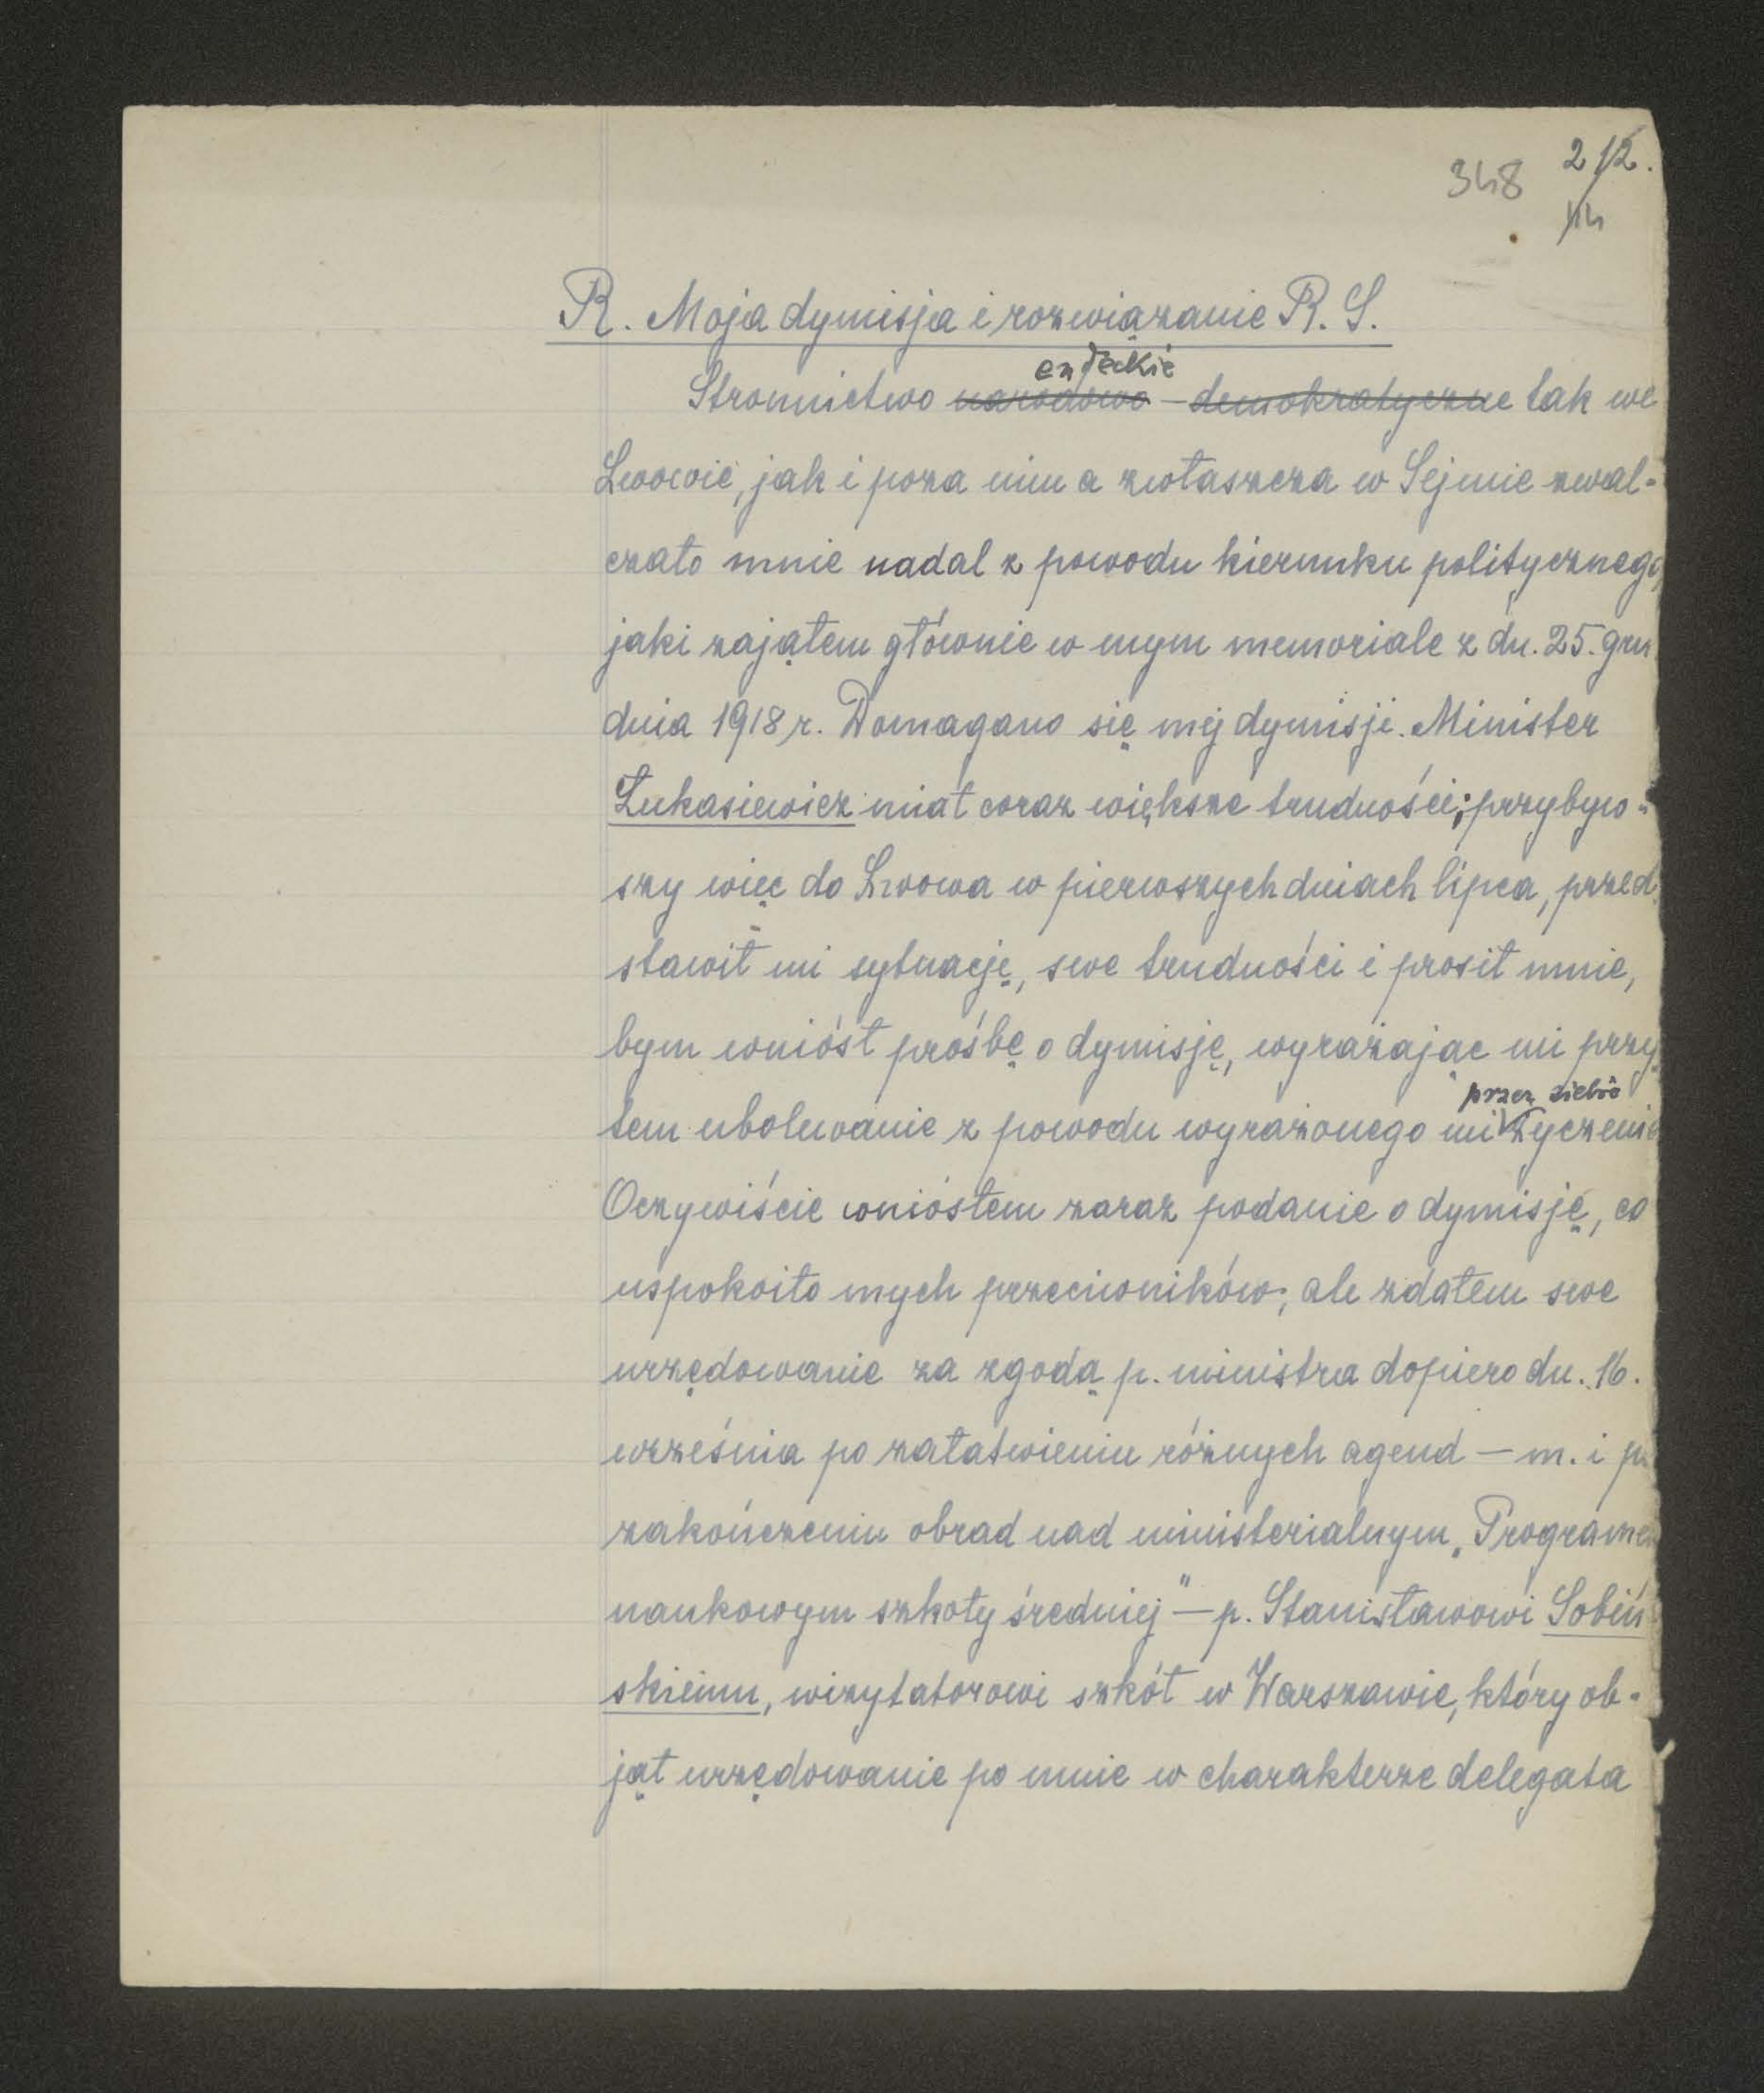 348 212.
14
R. Moja dymisja i rozwiązanie R. S.
endeckie
Stronnictwo narodowo-demokratyczne tak we
Lwowie, jak i poza nim a zwłaszcza w Sejmie zwal-
czało mnie nadal z powodu kierunku politycznego,
jaki zająłem głównie w mym memoriale z dn. 25. gru
dnia 1918 r. Domagano się mej dymisji. Minister
Łukasiewicz miał coraz większe trudności; przybyw-
szy więc do Lwowa w pierwszych dniach lipca, przed-
stawił mi sytuację, swe trudności i prosił mnie,
bym wniósł prośbę o dymisję, wyrażając mi przy
przez siebie
tem ubolewanie z powodu wyrażonego mi życzenia
Oczywiście wniosłem zaraz podanie o dymisję, co
uspokoiło mych przeciwników, ale zdałem swe
urzędowanie za zgodą p. ministra dopiero dn. 16.
września po załatwieniu różnych agend — m. i po
zakończeniu obrad nad ministerialnym „Programem
naukowym szkoły średniej" — p. Stanisławowi Sobiń
skiemu, wizytatorowi szkół w Warszawie, który ob-
jął urzędowanie po mnie w charakterze delegata